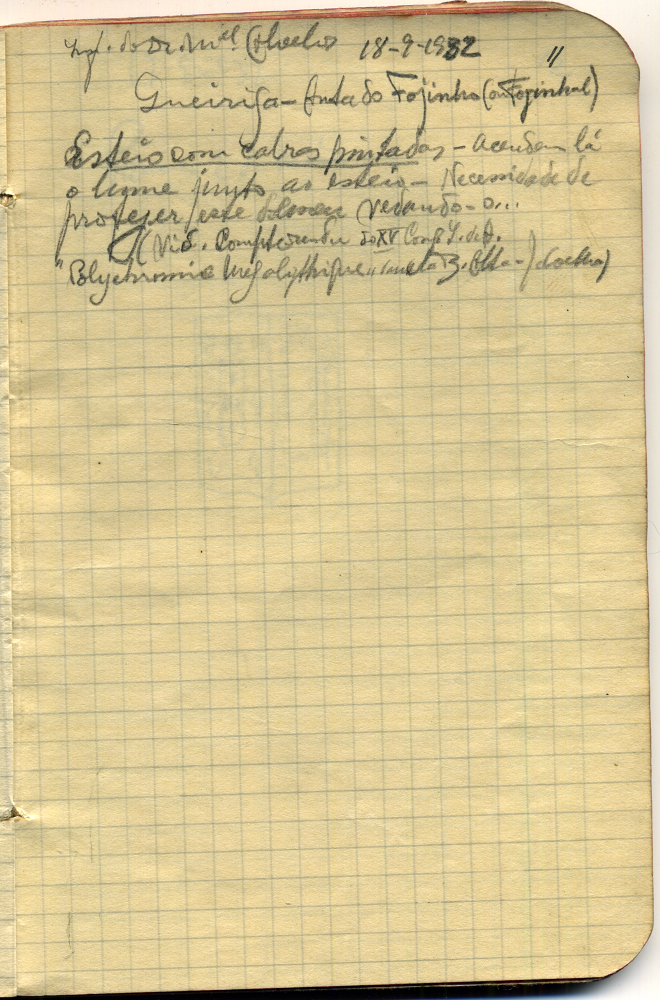 Inf. do Dr. Mel Coelho 18-9-1932 11
Queiriga - Anta do Fojinho (ou Fojinhal)
Esteio com cabras pintadas - Acendem lá
o lume junto ao esteio - Necessidade de
proteger este dolmen vedando-o...
(Vid. Compte rendu do XV Cong. I. de A.
"Polychromie Megalythique" Coelho)